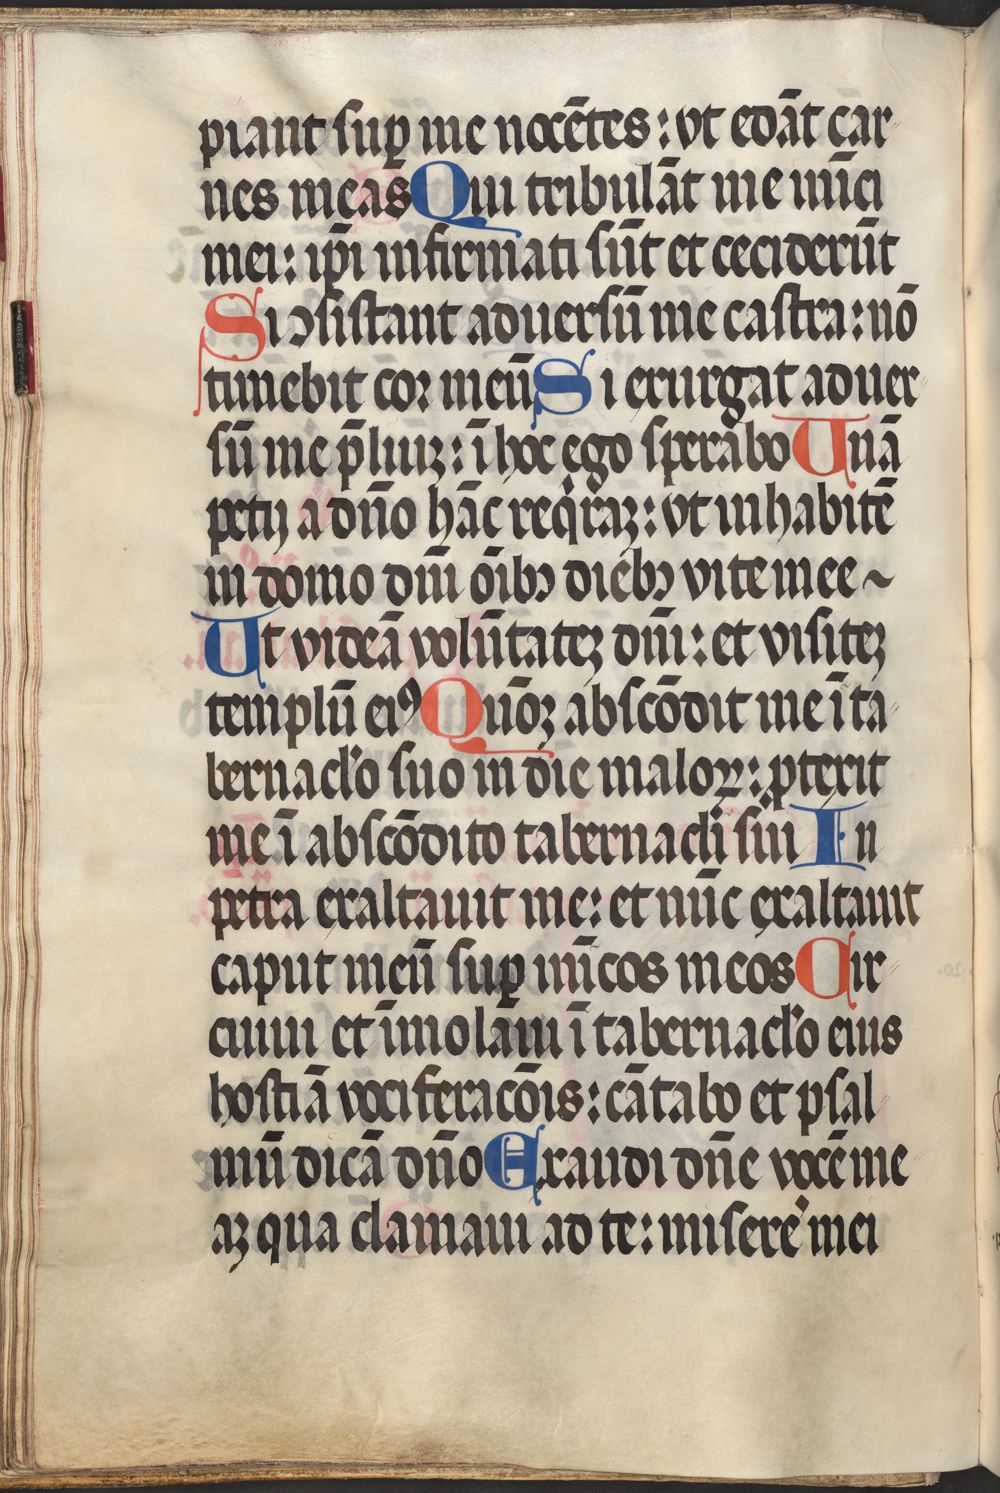 piant sup̱ me nocētes : vt edāt car
nes meas Qui tribulāt me inīci
mei : ip̄i infirmati sūt et cecıderūt
Si ↄsistant aduersū me castra : nō
timebit cor meū Si exurgat aduer
sū me p̄liuꝫ : ī hoc ego sperabo Unā
petij a dn̄o hāc requiraꝫ : vt inhabitē
in domo dn̄i oībꝫ diebꝫ vite mee ~
Ut videā volūtateꝫ dn̄i : et visiteꝫ
templū eiꝰ Qūoꝫ abscōdit me ī ta
bernaclo suo in die maloꝝ : ꝓtexit
me ī abscōdito tabernacli sui In
petra exaltauit me : et nūc exaltauit
caput meū sup̱ inīcos meos Cir
cuiui et īmolāui ī tabernaclo eius
hostiā vociferacōis : cātabo et psal
mū dicā dn̄o Exaudi dn̄e vocē me
aꝫ qua clamaui ad te : misere mei